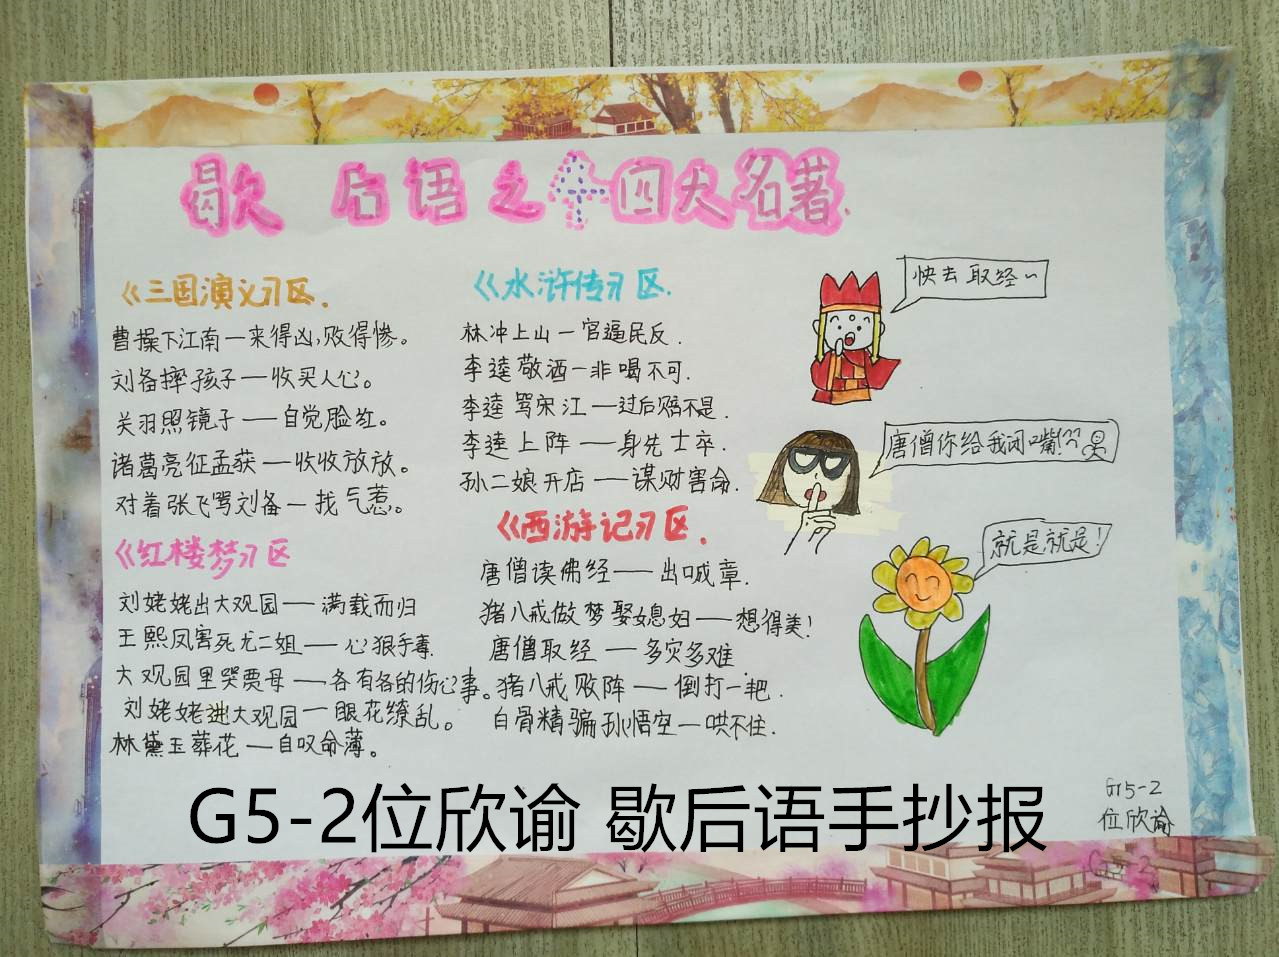 歇后语之个四大名著.
《三国演义》区.
曹操下江南一来得凶,败得惨。
刘备摔孩子——收买人心。
关羽照镜子——自觉脸红。
诸葛亮征孟获一收收放放。
对着张飞骂刘备一找气惹。
《红楼梦》区
刘姥姥出大观园——满载而归
王熙凤害死尤二姐——心狠手毒.
大观园里哭贾母——各有各的伤心事。
刘姥姥进大观园一眼花缭乱。
林黛玉葬花—自叹命薄。
《水浒传》区.
林冲上山一官逼民反.
李逵敬酒一非喝不可.
李逵骂宋江——过后赔不是.
李逵上阵——身先士卒.
孙二娘开店——谋财害命.
《西游记》区.
唐僧读佛经——出口成章.
猪八戒做梦娶媳妇——想得美!
唐僧取经——多灾多难
猪八戒败阵——倒打一耙.
白骨精骗孙悟空—哄不住.
快去取经~
唐僧你给我闭嘴!
就是,就是!
G5-2
位欣谕
G5-2位欣谕 歇后语手抄报